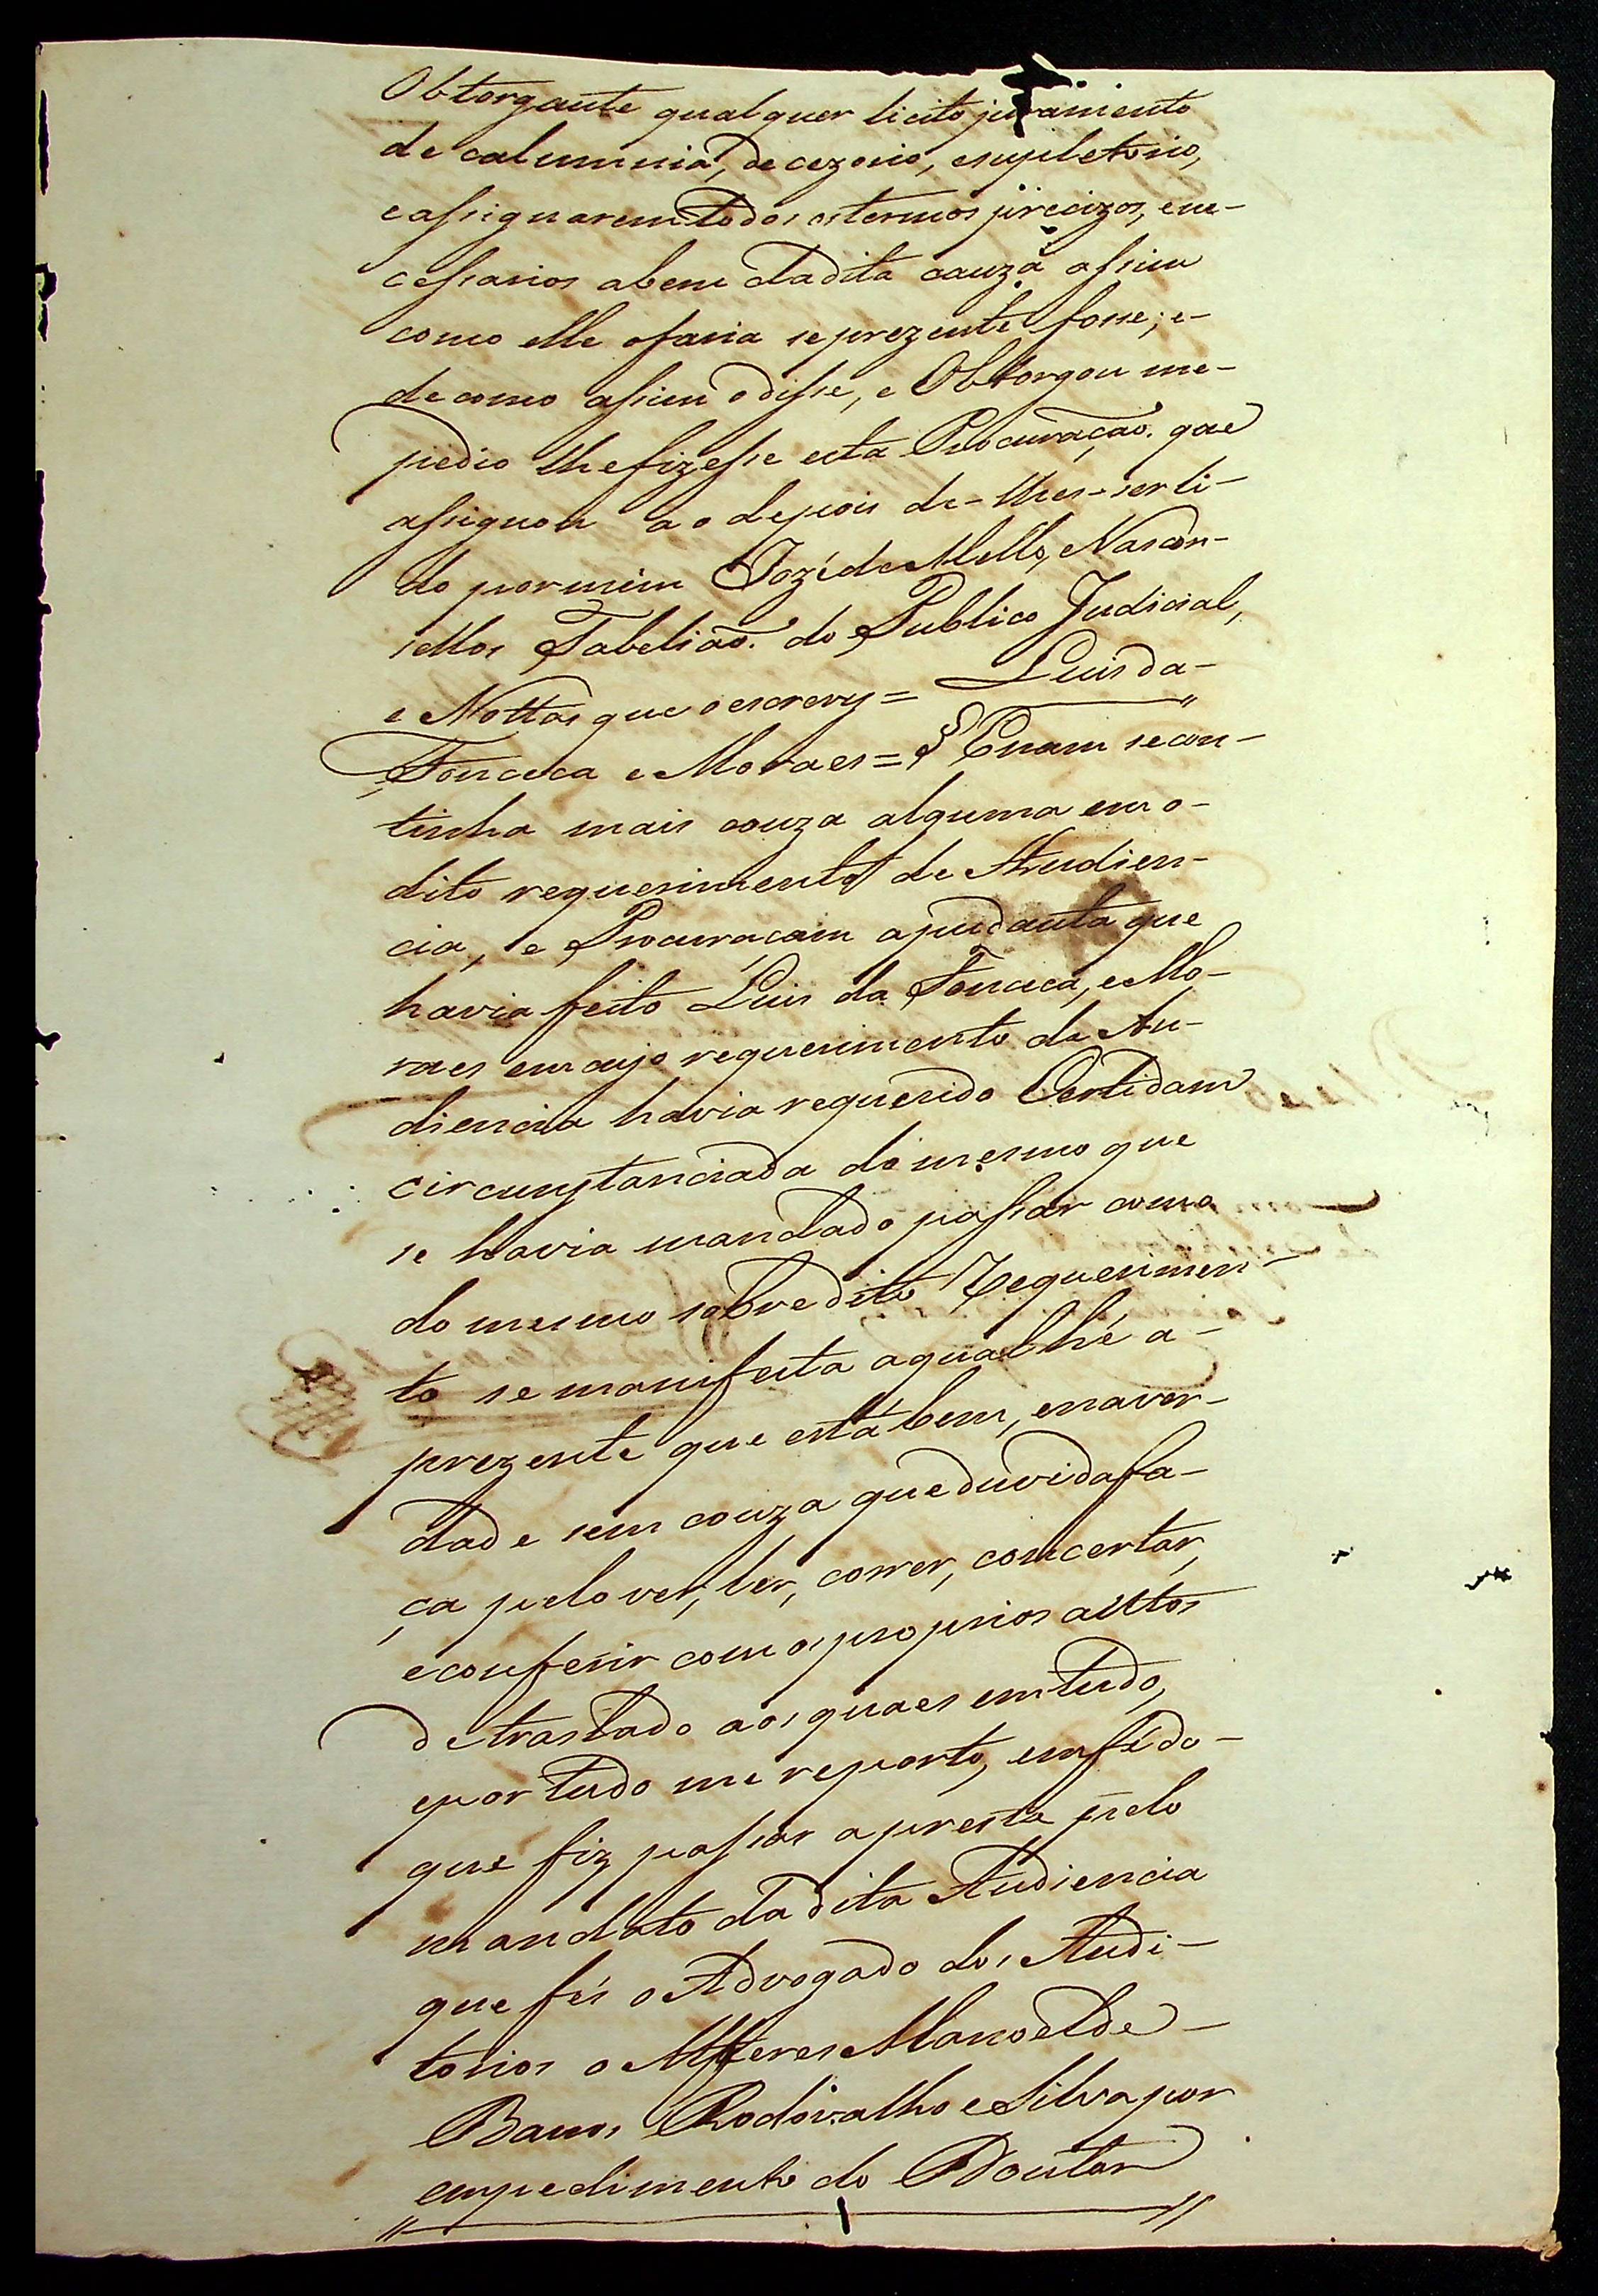 Obtorgante qualquer licito juramento
de calumnia, decezorio, esupletorio,
eassignarem todos ostermos precizos, ene-
cessarios abem dadita cauza assim
como elle ofaria seprezente fosse; e-
decomo assim odisse, e Obtorgou me-
pedio lhefizesse esta Procuração. que
assignou ao depois de-lhes-serli-
do pormim Jozé de Mello, Vascon-
sellos Tabelião. do Publico Judicial,
e Nottas que oescrevy= Luis da-
Fonceca e Moraes= § Enam secon-
tinha mais couza alguma em o-
dito requerimento de Audien-
cia, e Procuracam apudauta que
havia feito Luis da Fonceca, e Mo-
raes emcujo requerimento de Au-
diencia havia requerido Certidam
circunstanciada domesmo que
se havia mandado passar como
do mesmo sobredito Requerimen-
to se manifesta aqual hé a-
prezente que está bem, enaver-
dade sem couza queduvidafa-
ça pelover, ler, correr, concertar,
econferir com os proprios auttos
detraslado aos quaes emtudo,
eportudo me reporto, emfédo-
que fiz passar apresta pelo
mandato dadita Audiencia
que fés o Advogado dos Audi-
torios o Alferes Manoel de-
Barros Rodovalho e Silva por
empedimento do Doutor